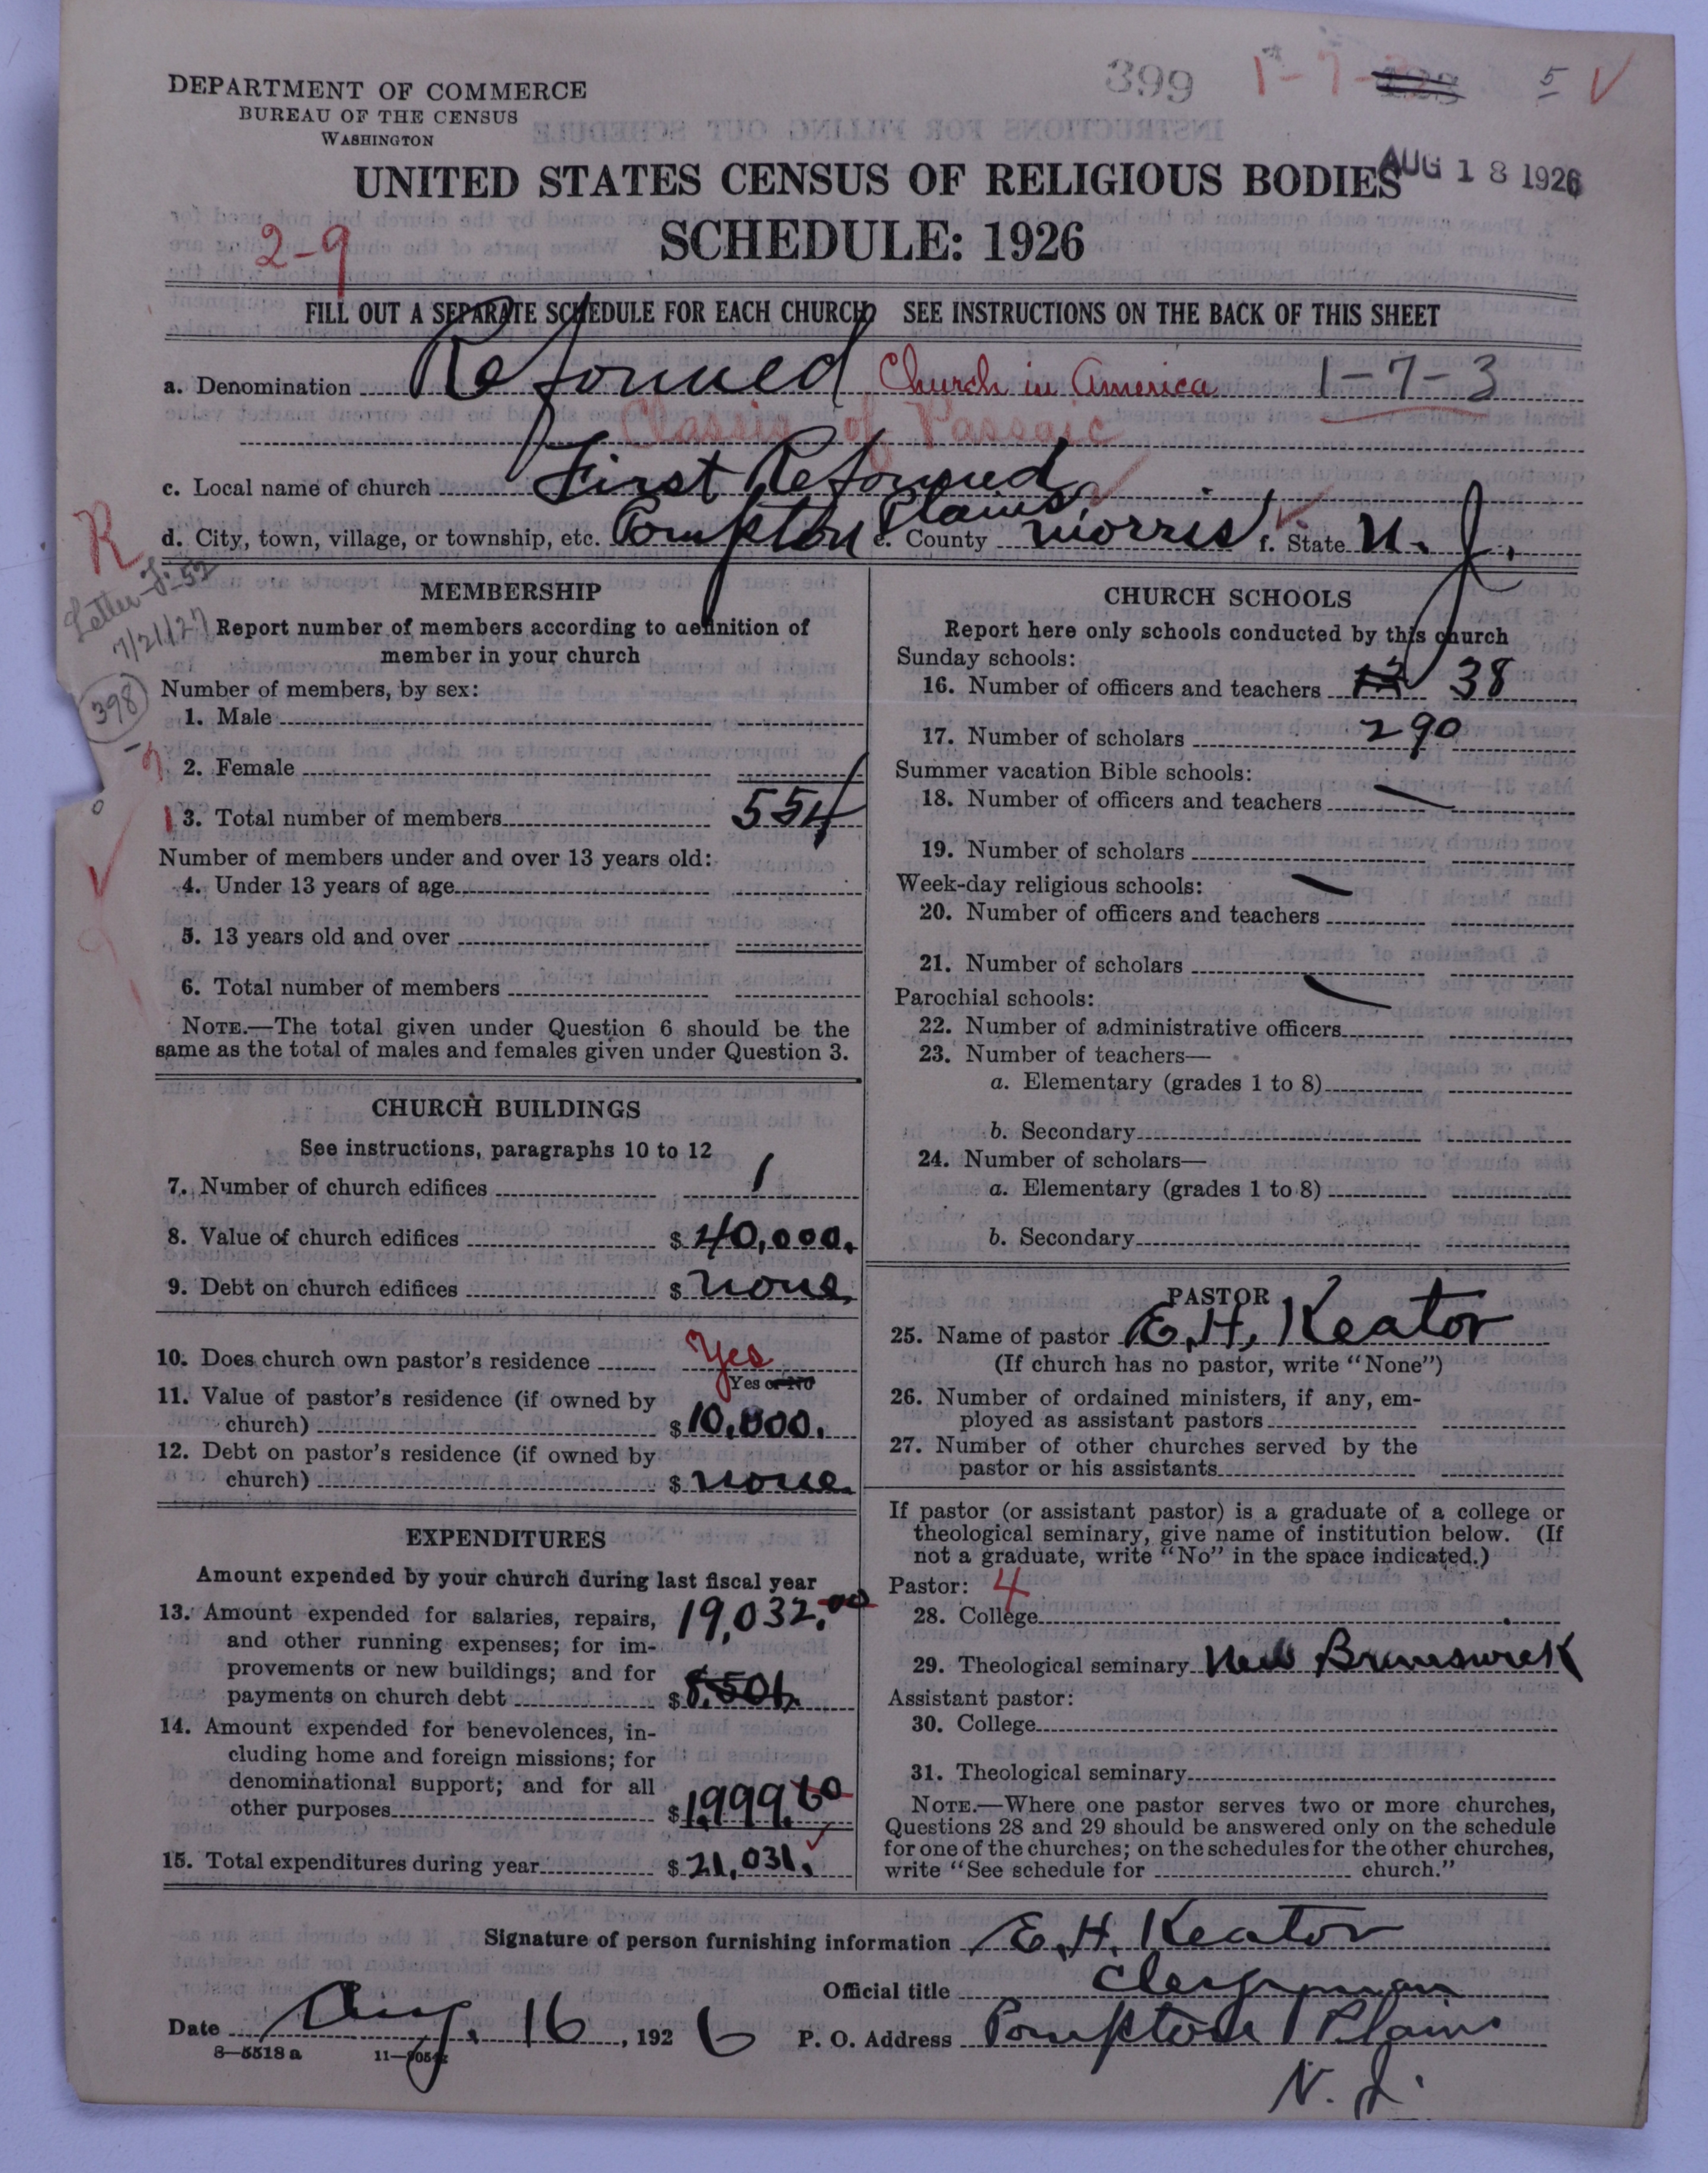 DEPARTMENT OF COMMERCE
BUREAU OF THE CENSUS
WASHINGTON
399
1-7-
5
AUG 18 1926
UNITED STATES CENSUS OF RELIGIOUS BODIES
SCHEDULE: 1926
2-9
FILL OUT A SEPARATE SCHEDULE FOR EACH CHURCH SEE INSTRUCTIONS ON THE BACK OF THIS SHEET
a. Denomination Reformed Church in America 1-7-3
Classis of Passaic
c. Local name of church First Reformed
d. City, town, village, or township, etc. Pompton Plains, e. County Morris f. State N. J.
R
Letter J-52
7/21/27
398
MEMBERSHIP
Report number of members according to definition of
member in your church
Number of members, by sex:
1. Male
2. Female
3. Total number of members 554
Number of members under and over 13 years old:
4. Under 13 years of age
5. 13 years old and over
6. Total number of members
NOTE.—The total given under Question 6 should be the
same as the total of males and females given under Question 3.
CHURCH BUILDINGS
See instructions, paragraphs 10 to 12
7. Number of church edifices 1
8. Value of church edifices $ 40,000.
9. Debt on church edifices $ none
10. Does church own pastor's residence Yes
Yes or No
11. Value of pastor's residence (if owned by
church) $ 10,000.
12. Debt on pastor's residence (if owned by
church) $ none
EXPENDITURES
Amount expended by your church during last fiscal year
13. Amount expended for salaries, repairs, 19,032.00
and other running expenses; for im-
provements or new buildings; and for
payments on church debt $ 8,501.
14. Amount expended for benevolences, in-
cluding home and foreign missions; for
denominational support; and for all
other purposes $ 1,999.60
15. Total expenditures during year $ 21,031.
CHURCH SCHOOLS
Report here only schools conducted by this church
Sunday schools:
16. Number of officers and teachers 38
17. Number of scholars 290
Summer vacation Bible schools:
18. Number of officers and teachers
19. Number of scholars
Week-day religious schools:
20. Number of officers and teachers
21. Number of scholars
Parochial schools:
22. Number of administrative officers
23. Number of teachers—
a. Elementary (grades 1 to 8)
b. Secondary
24. Number of scholars—
a. Elementary (grades 1 to 8)
b. Secondary
PASTOR
25. Name of pastor E. H. Keator
(If church has no pastor, write "None")
26. Number of ordained ministers, if any, em-
ployed as assistant pastors
27. Number of other churches served by the
pastor or his assistants
If pastor (or assistant pastor) is a graduate of a college or
theological seminary, give name of institution below. (If
not a graduate, write "No" in the space indicated.)
Pastor: 4
28. College
29. Theological seminary New Brunswick
Assistant pastor:
30. College
31. Theological seminary
NOTE.—Where one pastor serves two or more churches,
Questions 28 and 29 should be answered only on the schedule
for one of the churches; on the schedules for the other churches,
write "See schedule for church."
Signature of person furnishing information E. H. Keator
Official title Clergyman
Date Aug. 16, 1926 P. O. Address Pompton Plains
N. J.
8—5518 a